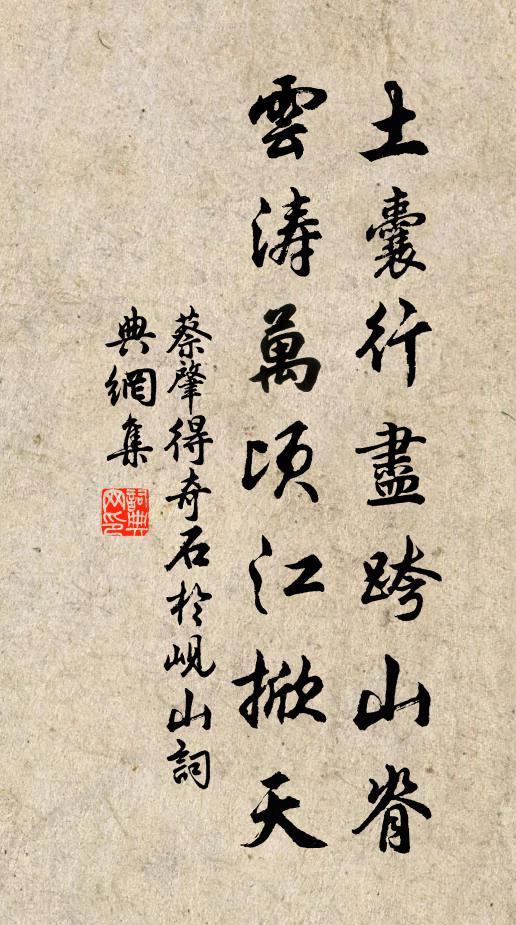 土囊行盡跨山脊
雲濤萬頃江掀天
蔡肇得奇石於峴山詞
典網集
詞典網印